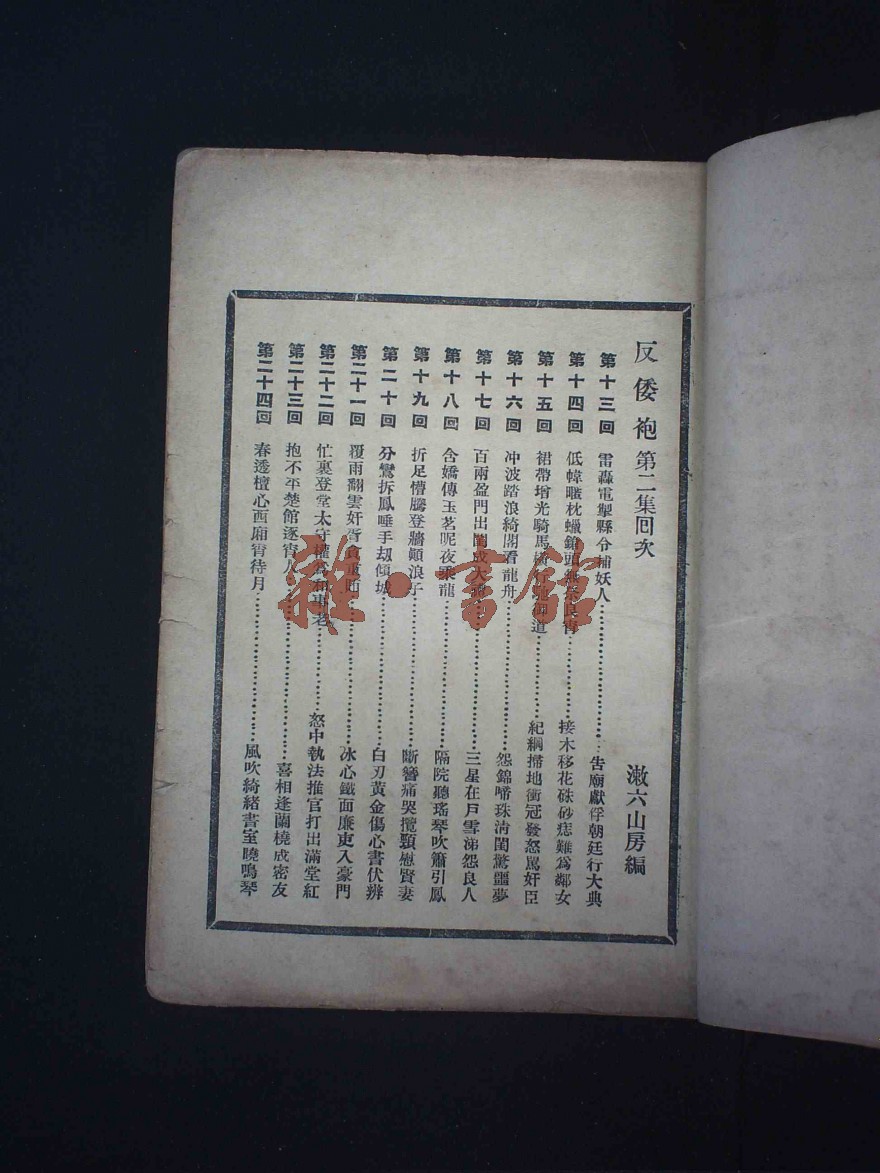 反倭袍第二集回次
漱六山房編
第十三回 雷轟電掣縣令捕妖人 告廟獻俘朝廷行大典
第十四回 低幃暱枕蠟鎗頭無奈良宵 接木移花硃砂痣難爲鄰女
第十五回 裙帶增光騎馬橫行馳御道 紀綱掃地衝冠發怒罵奸臣
第十六回 冲波踏浪綺閣看龍舟 怨錦啼珠淸閨驚噩夢
第十七回 百兩盈門出閨成大 三星在戶雪涕怨良人
第十八回 含嬌傳玉茗呢夜乘龍 隔院聽瑤琴吹簫引鳳
第十九回 折足懵騰登牆顚浪子 斷簪痛哭攬頸慰賢妻
第二十回 分鸞拆鳳唾手刼傾城 白刃黃金傷心書伏辨
第二十一回 覆雨翻雲奸胥貪重賄 冰心鐵面廉吏入豪門
第二十二回 忙裏登堂太守權爲和事老 怒中執法推官打出滿堂紅
第二十三回 抱不平楚館逐宵人 喜相逢蘭橈成密友
第二十四回 春透檀心西廂宵待月 風吹綺緒書室曉鳴琴
雜·書館